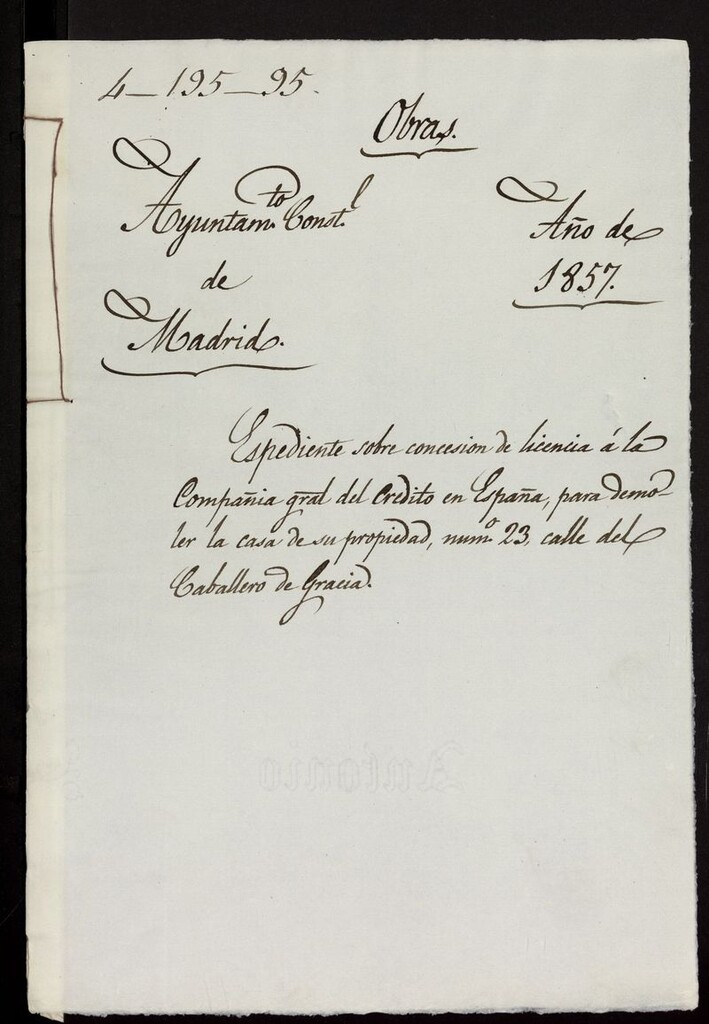 4-195-95.
Obras.
Ayuntam.to Const.l
de
Madrid.
Año de
1857.
Espediente sobre concesion de licencia á la
Compañia gral del Credito en España, para demo-
ler la casa de su propiedad, num.o 23, calle del
Caballero de Gracia.
Antonio